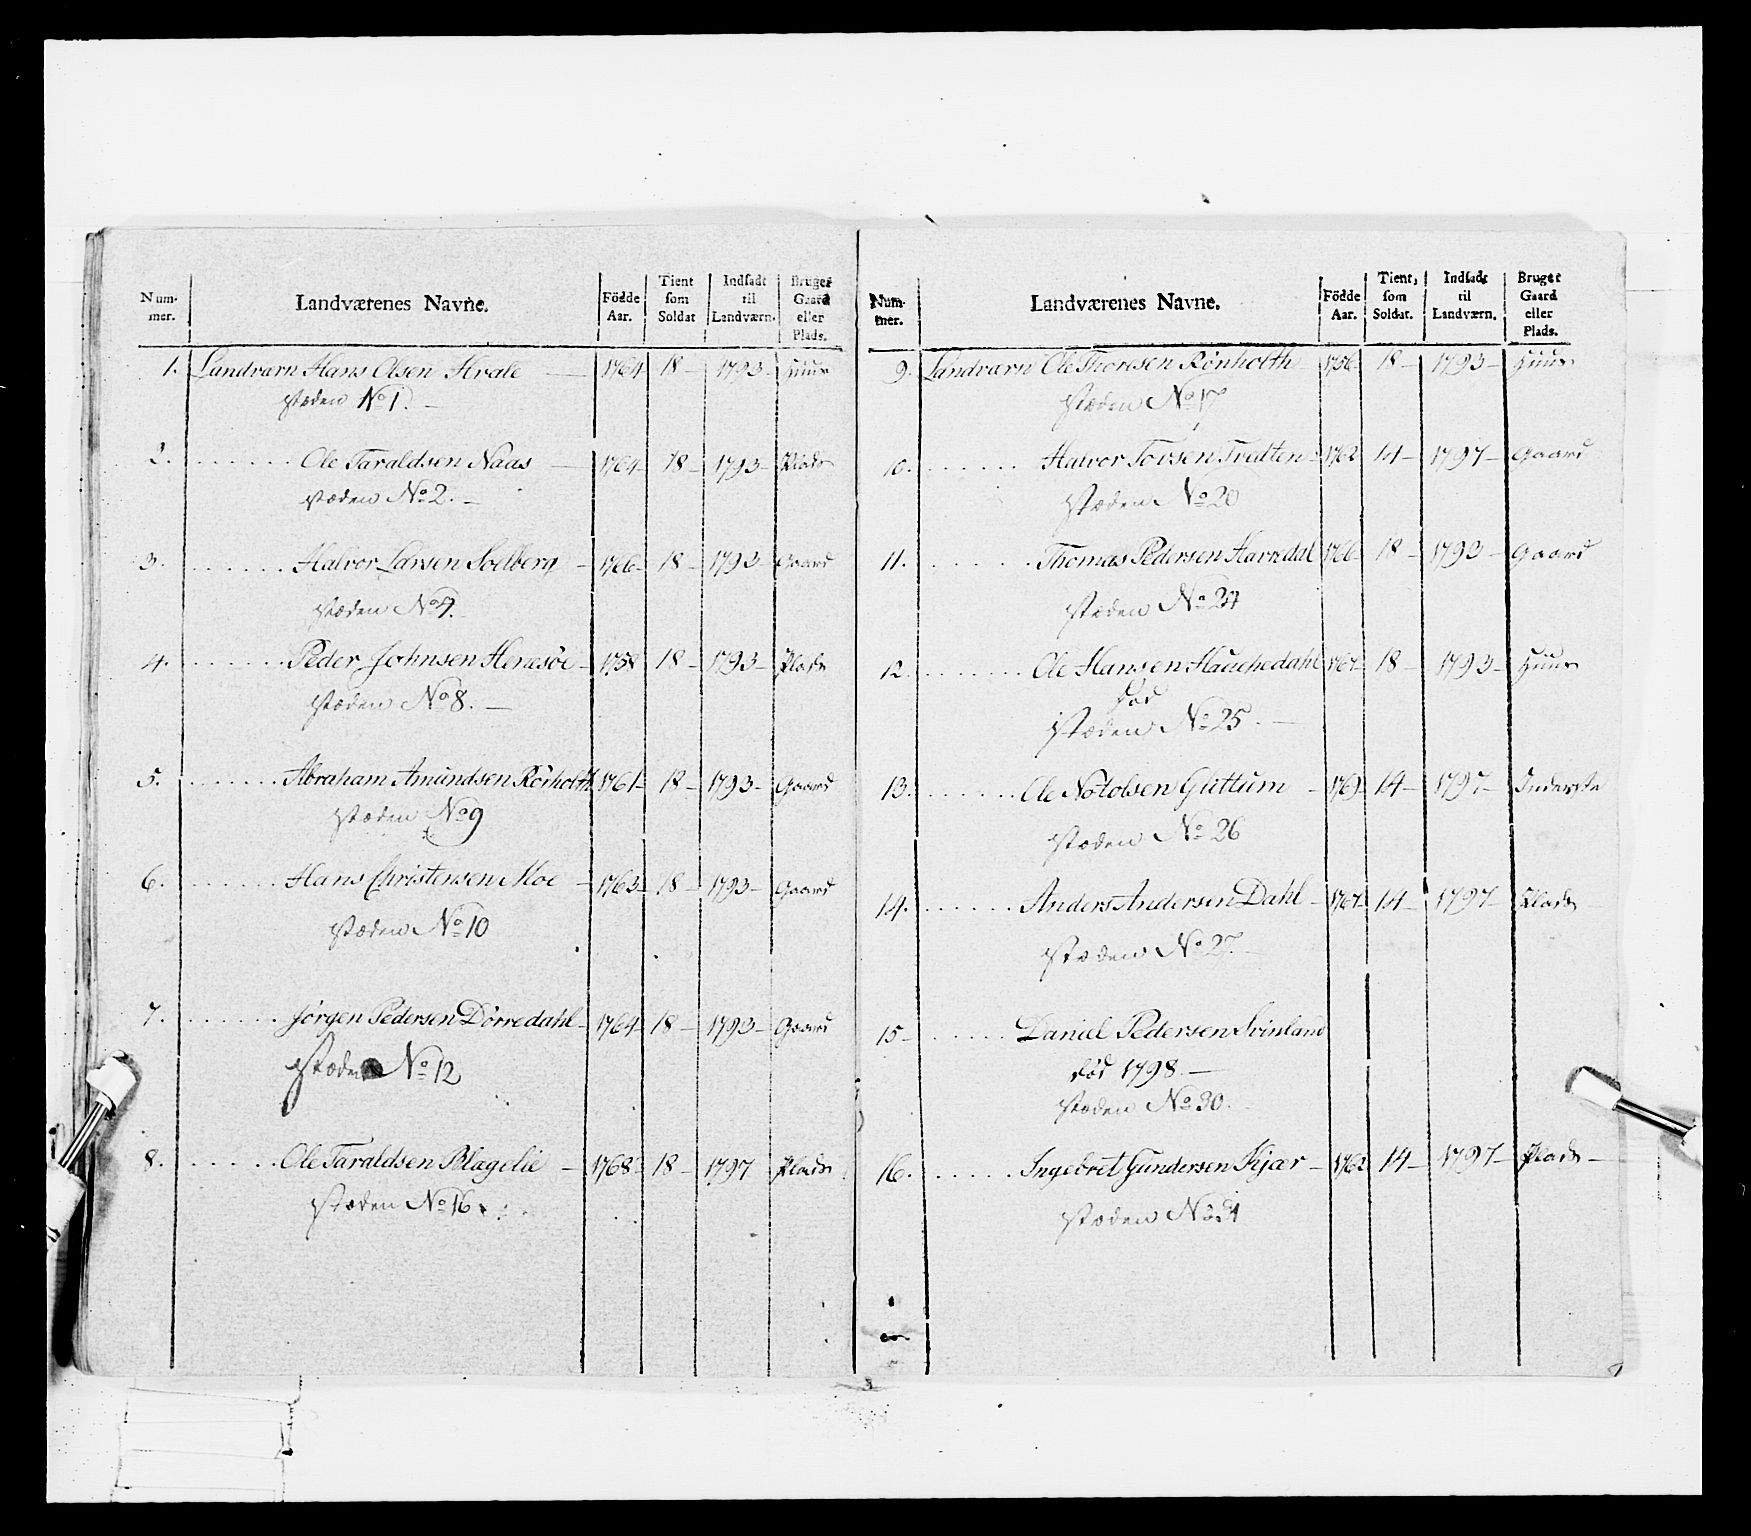 Num-
mer.
Landværenes Navne.
Födde
Aar.
Tient
som
Soldat
Indsadt
til
Landværn.
Bruger
Gaard
eller
Plads.
1. Landværn Hans Olsen Hvale — 1764 18 — 1793 — Huus
Roeden No 1. —
2. . . . . . . . Ole Taraldsen Naas — 1764 18 — 1793 — Plads
Roeden No 2. —
3. . . . . . . . Halvor Larsen Solberg — 1766 18 — 1793 Gaard
Roeden No 7.
4. . . . . . . . Peder Johnsen Heræsöe — 1758 18 — 1793 — Plads
Roeden No 8. —
5. . . . . . . . Abraham Amundsen Rörholth 1761 — 18 — 1793 — Gaard
Roeden No 9
6. . . . . . . . Hans Christensen Moe — 1763 18 — 1793 — Gaard
Roeden No 10
7. . . . . . . . Jörgen Pedersen Dörredahl — 1764 18 — 1793 — Gaard
Roeden No 12
8. . . . . . . . Ole Taraldsen Blagelie — 1768 18 — 1797 Plads
Roeden No 16
Num-
mer.
Landværenes Navne.
Födde
Aar.
Tient,
som
Soldat.
Indsadt
til
Landværn.
Bruger
Gaard
eller
Plads.
9. Landværn Ole Thoresen Rönholth 1756 18 — 1793 — Huus
Roeden No 17
10. . . . . . . . Halvor Tovsen Tvedten 1762 14 — 1797 — Gaard
Roeden No 20
11. . . . . . . . Thomas Pedersen 1766 18 — 1793 — Gaard
Roeden No 24
12. . . . . . . . Ole Hansen 1767 18 — 1793 — Huus
död
Roeden No 25. —
13. . . . . . . . Ole Notolsen Guttum — 1769 14 — 1797 — Inderste
Roeden No 26
14. . . . . . . . Anders Andersen Dahl — 1767 14 — 1797 — Plads
Roeden No 27. —
15 — . . . . . . Daniel Pedersen Svinland
död 1798. —
Roeden No 30.
16. . . . . . . . Ingebret Gundersen Kjær — 1762 14 — 1797 — Plads —
Roeden No 31